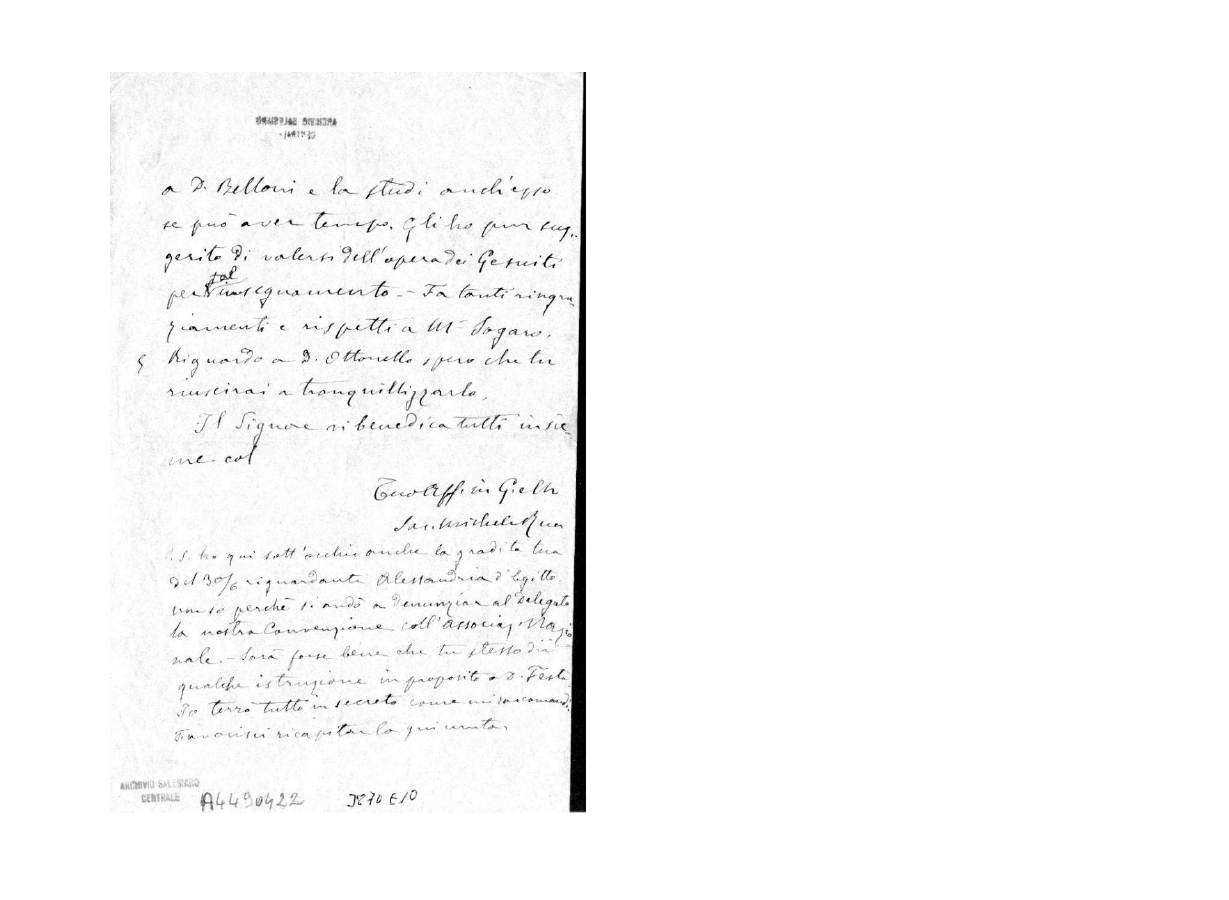 ARCHIVIO SALESIANO
CENTRALE
a D. Belloni e la studi anch'esso
se può aver tempo. Gli ho pur sug-
gerito di valersi dell'opera dei Gesuiti
per tal insegnamento. – Fa tanti ringra-
ziamenti e rispetti a Mr Sogaro.
5 Riguardo a D. Ottonello spero che tu
riuscirai a tranquillizzarlo.
Il Signore vi benedica tutti insie-
me col
Tuo Aff. in G. e M.
Sac. Michele Rua
P.S. ho qui sott'occhio anche la gradita tua
del 30/6 riguardante Alessandria d'Egitto.
non so perchè si andò a denunziar al Delegato
la nostra Convenzione coll'Associaz. Nazio
nale. – Sarà forse bene che tu stesso dii
qualche istruzione in proposito a D. Festa
Io terrò tutto in secreto come mi raccomandi.
Favorisci ricapitar la qui unita.
ARCHIVIO SALESIANO
CENTRALE
A4490422
3270 E10